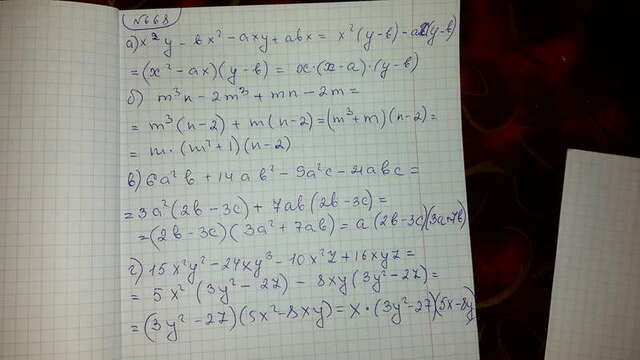 №668
а) x²y - bx² - axy + abx = x²(y-b) - ax(y-b)
= (x² - ax)(y-b) = x·(x-a)·(y-b)
б) m³n - 2m³ + mn - 2m =
= m³(n-2) + m(n-2) = (m³+m)(n-2) =
= m·(m²+1)(n-2)
в) 6a²b + 14ab² - 9a²c - 21abc =
= 3a²(2b-3c) + 7ab(2b-3c) =
= (2b-3c)(3a²+7ab) = a(2b-3c)(3a+7b)
г) 15x²y² - 24xy³ - 10x²z + 16xyz =
= 5x²(3y²-2z) - 8xy(3y²-2z) =
= (3y²-2z)(5x²-8xy) = x·(3y²-2z)(5x-8y)